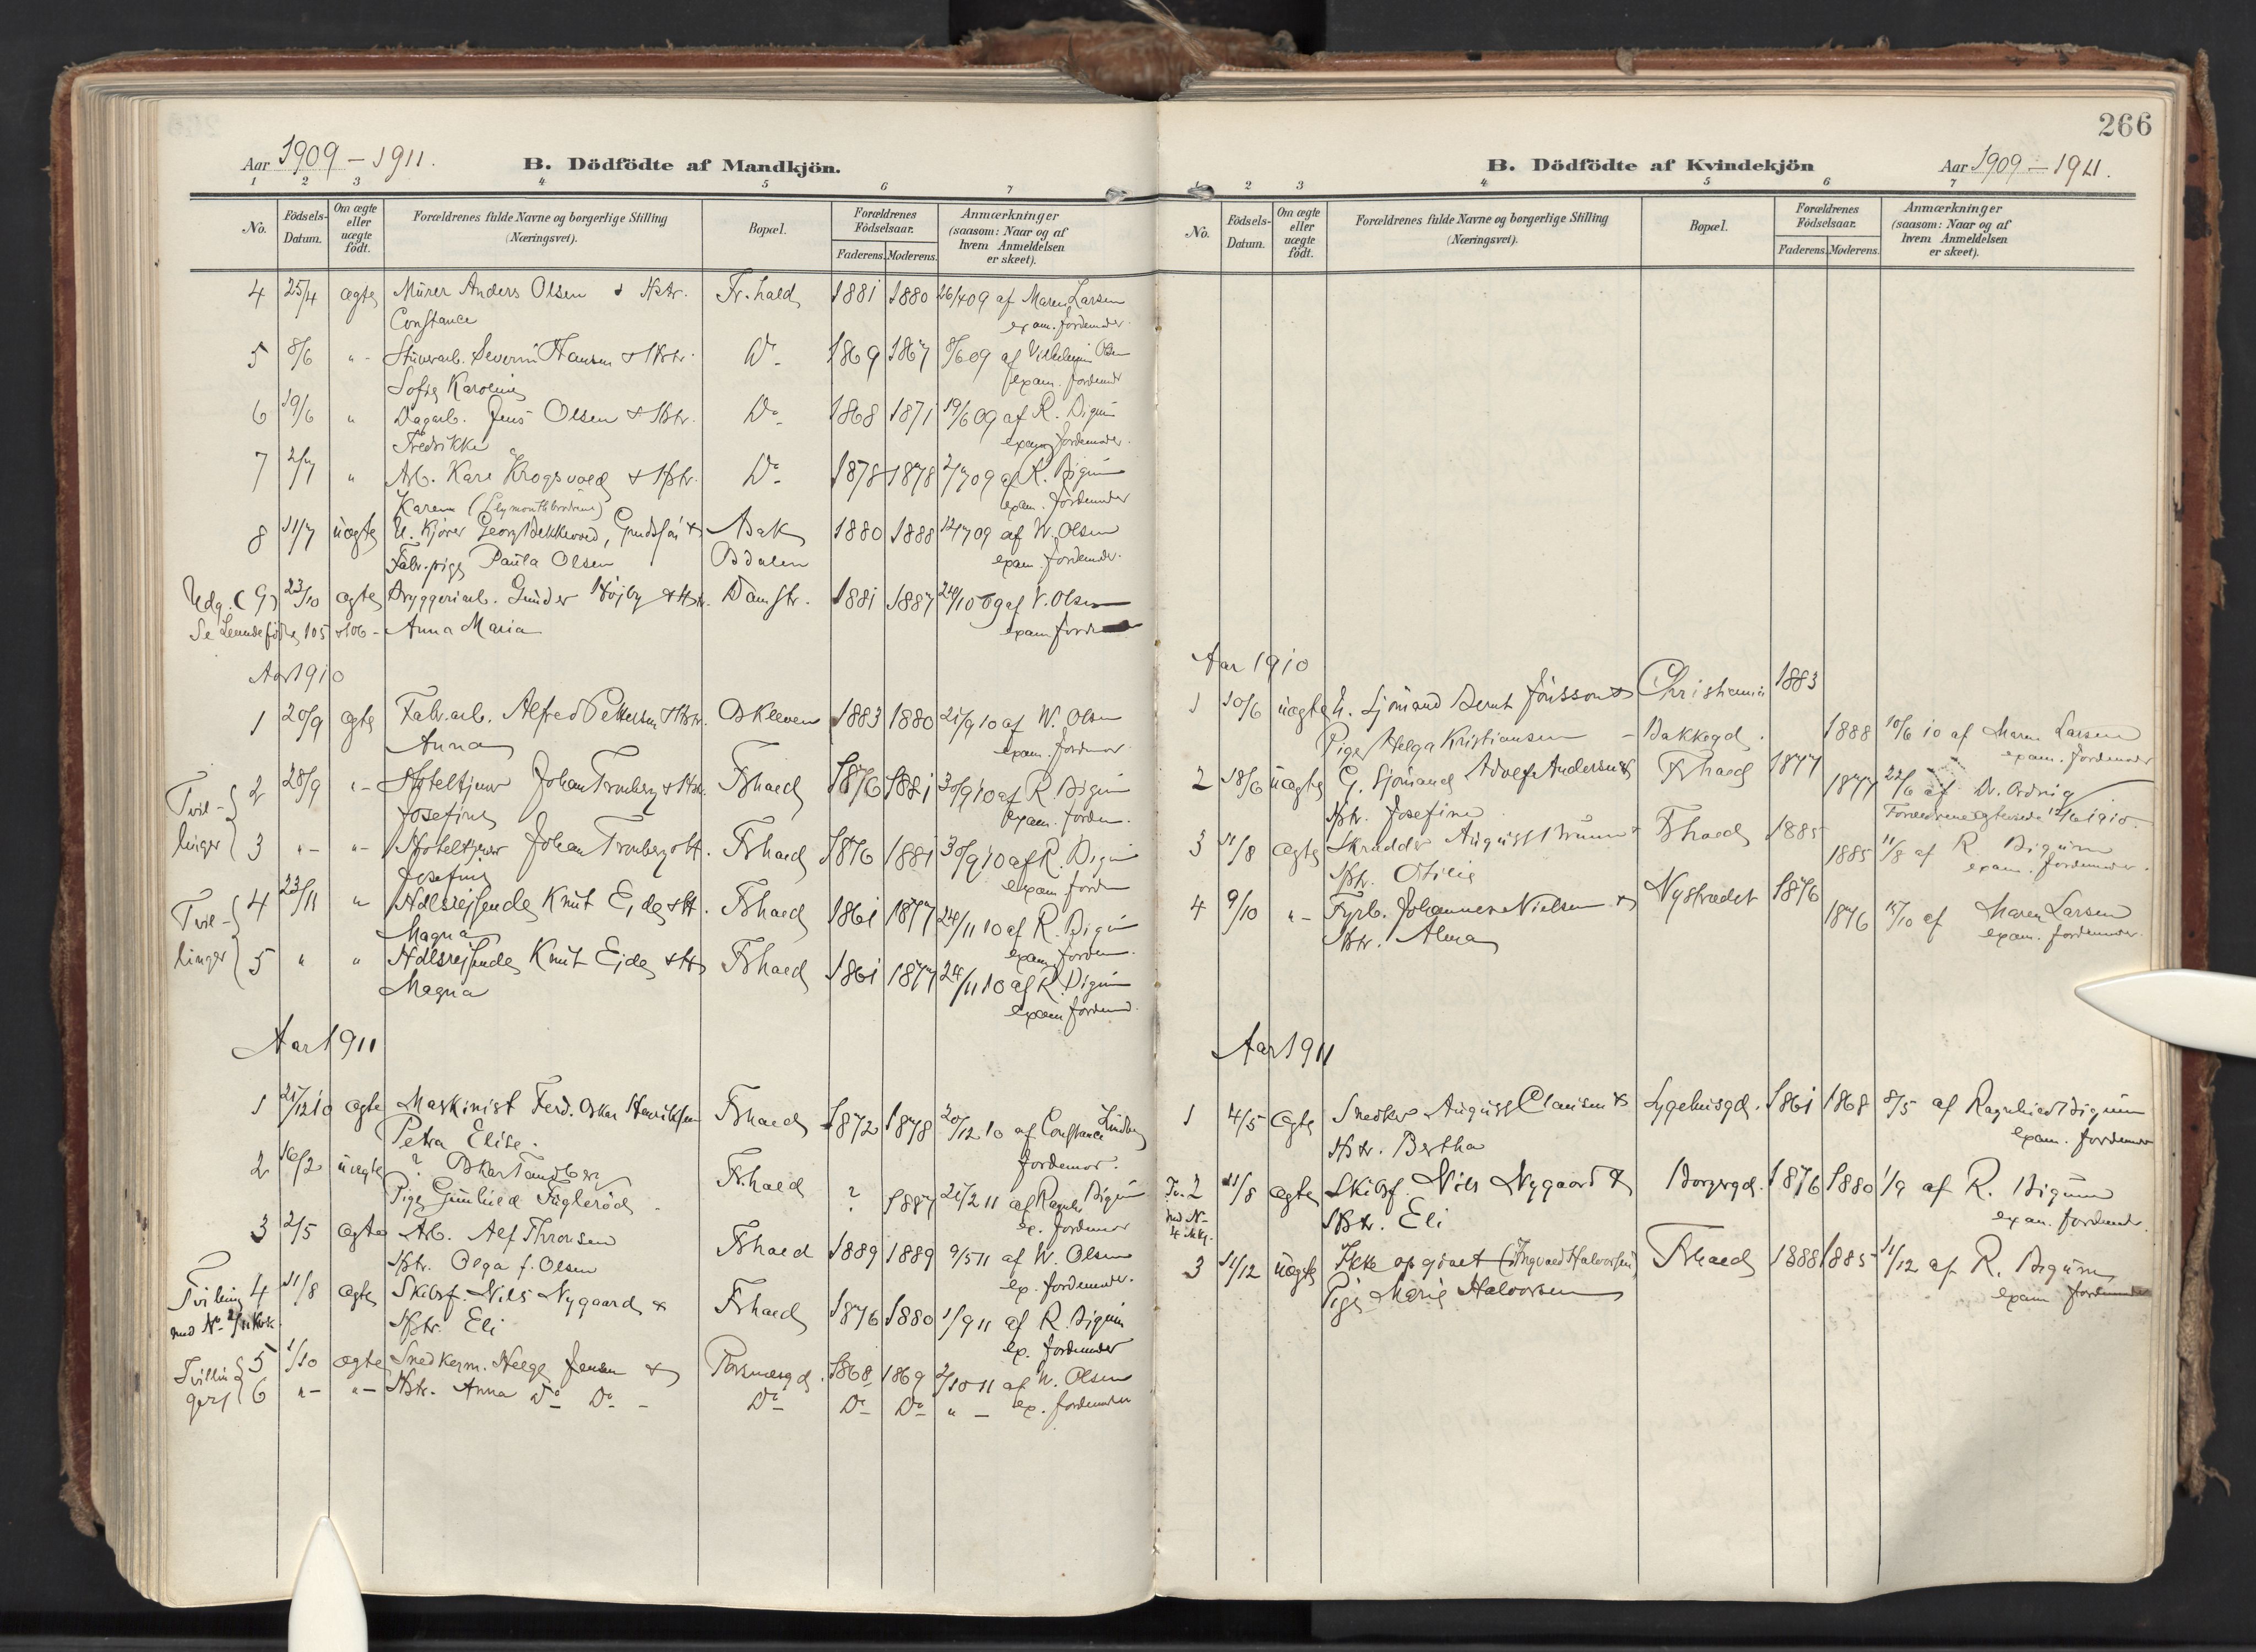 Aar 1909 – 1911.
B. Dödfödte af Mandkjön.
1 2 3 4 5 6 7
No.
Födsels-Datum.
Om ægte eller uægte födt.
Forældrenes fulde Navne og borgerlige Stilling (Næringsvei).
Bopæl.
Forældrenes Födselsaar.
Faderens. Moderens.
Anmærkninger (saasom: Naar og af hvem Anmeldelsen er skeet).
4 25/4 ægte Murer Anders Olsen & Hstr. Fr.hald 1881 1880 26/4 09 af Maren Larsen
Constance exam. jordemoder.
5 8/6 " - Severin Hansen & Hstr. Do - 1869 1867 8/6 09 af Vilhelmine Olsen
Sofie Karoline exam. jordemdr
6 19/6 " Dagarb. Jens Olsen & Hstr. Do - 1868 1871 19/6 09 af R. Bigum
Fredrikke exam. jordemoder.
7 2/7 " Arb. Karl Krogsvold & Hstr. Do - 1878 1878 2/7 09 af R. Bigum
Karen exam. jordemoder
8 11/7 uægte U. Kjører Georg & Asak 1880 1888 12/7 09 af W. Olsen
Fabr.pige Paula Olsen exam. jordemdr.
Udg. (9) 23/10 ægte Bryggeriarb. Gunder Höjby & Hstr. Damstr. 1881 1887 24/10 09 af V. Olsen
Se Levendefödte 105 & 106 - Anna Maria exam. jordem
Aar 1910
1 20/9 ægte Fabr.arb. Alfred Pettersen & Hstr. Bkleven 1883 1880 21/9 10 af W. Olsen
Anna exam. jordmor.
Tvil- 2 28/9 " - Hoteltjener Johan Tronberg & Hstr. Fhald 1876 1881 30/9 10 af R. Bigum
Josefine exam. jordem.
linger 3 " - " - Hoteltjener Johan Tronberg & H. Fhald 1876 1881 30/9 10 af R. Bigum
Josefine exam. jordem
Tvil- 4 23/11 " Hdlsrejsende Knut Eide & H. Fhald 1861 1877 24/11 10 af R. Bigum
Magna exam. jordem.
linger 5 " " Hdlsrejsende Knut Eide & H Fhald 1861 1877 24/11 10 af R. Bigum
Magna exam. jordemd.
Aar 1911
1 21/12 10 ægte Maskinist Ferd. Oskar Henriksen Fhald 1872 1878 20/12 10 af Constance Lindberg
Petra Elise. jordemor.
2 16/2 uægte ? Oskar Tandberg
Pige Gunhild Fuglerød Fr.hald ? 1887 21/2 11 af Ragnh. Bigum
ex. jordemor
3 2/5 ægte Arb. Alf Thronsen Fhald 1889 1889 9/5 11 af W. Olsen
Hstr. Olga f. Olsen ex. jordemoder.
Tvilling 4 11/8 ægte Skibsf. Nils Nygaard & Fhald 1876 1880 1/9 11 af R. Bigum
med No 2/11 Kvk. Hstr. Eli ex. jordemoder
Tvillin- 5 1/10 ægte Snedkerm. Helge Jensen & 1868 1869 2/10 11 af W. Olsen
ger 6 " - " - Hstr. Anna Do Do - Do Do Do " - ex. jordemoder
266
B. Dödfödte af Kvindekjön
Aar 1909 – 1911.
1 2 3 4 5 6 7
No.
Födsels-Datum.
Om ægte eller uægte födt.
Forældrenes fulde Navne og borgerlige Stilling (Næringsvei).
Bopæl.
Forældrenes Födselsaar.
Faderens. Moderens.
Anmærkninger (saasom: Naar og af hvem Anmeldelsen er skeet).
Aar 1910
1 10/6 uægte U. Sjömand Bernt Jonsson & Christiania 1883
Pige Helga Kristiansen - Bakkegd. 1888 10/6 10 af Maren Larsen
exam. jordemoder
2 18/6 uægte G. Sjömand Adolf Andersen & Fhald 1877
Hstr. Josefine 1877 22/6 af Dr. Ordnig
Forældrene ægteviede 1910.
3 11/8 ægte Skrædder August & Fhald 1885
Hstr. Otilie 1885 11/8 af R. Bigum
exam. jordemoder.
4 9/10 " - Fyrb. Johannes Nielsen & Nystrædet 1876
Hstr. Alma 1876 af Maren Larsen
exam. jordemoder.
Aar 1911
1 4/5 ægte Snedker August Clausen & Lygehusgd. 1861 1868 8/5 af Ragnhild Bigum
Hstr. Bertha exam. jordemoder
Tv. 2 11/8 ægte Skibsf. Nils Nygaard & Borgergd. 1876 1880 1/9 af R. Bigum
med No 4 Mkj. Hstr. Eli exam. jordemdr.
3 11/12 uægte Ikke opgivet (Ingvald Halvorsen) Fhald 1888 1885 11/12 af R. Bigum
Pige Marie Halvorsen exam jordemoder